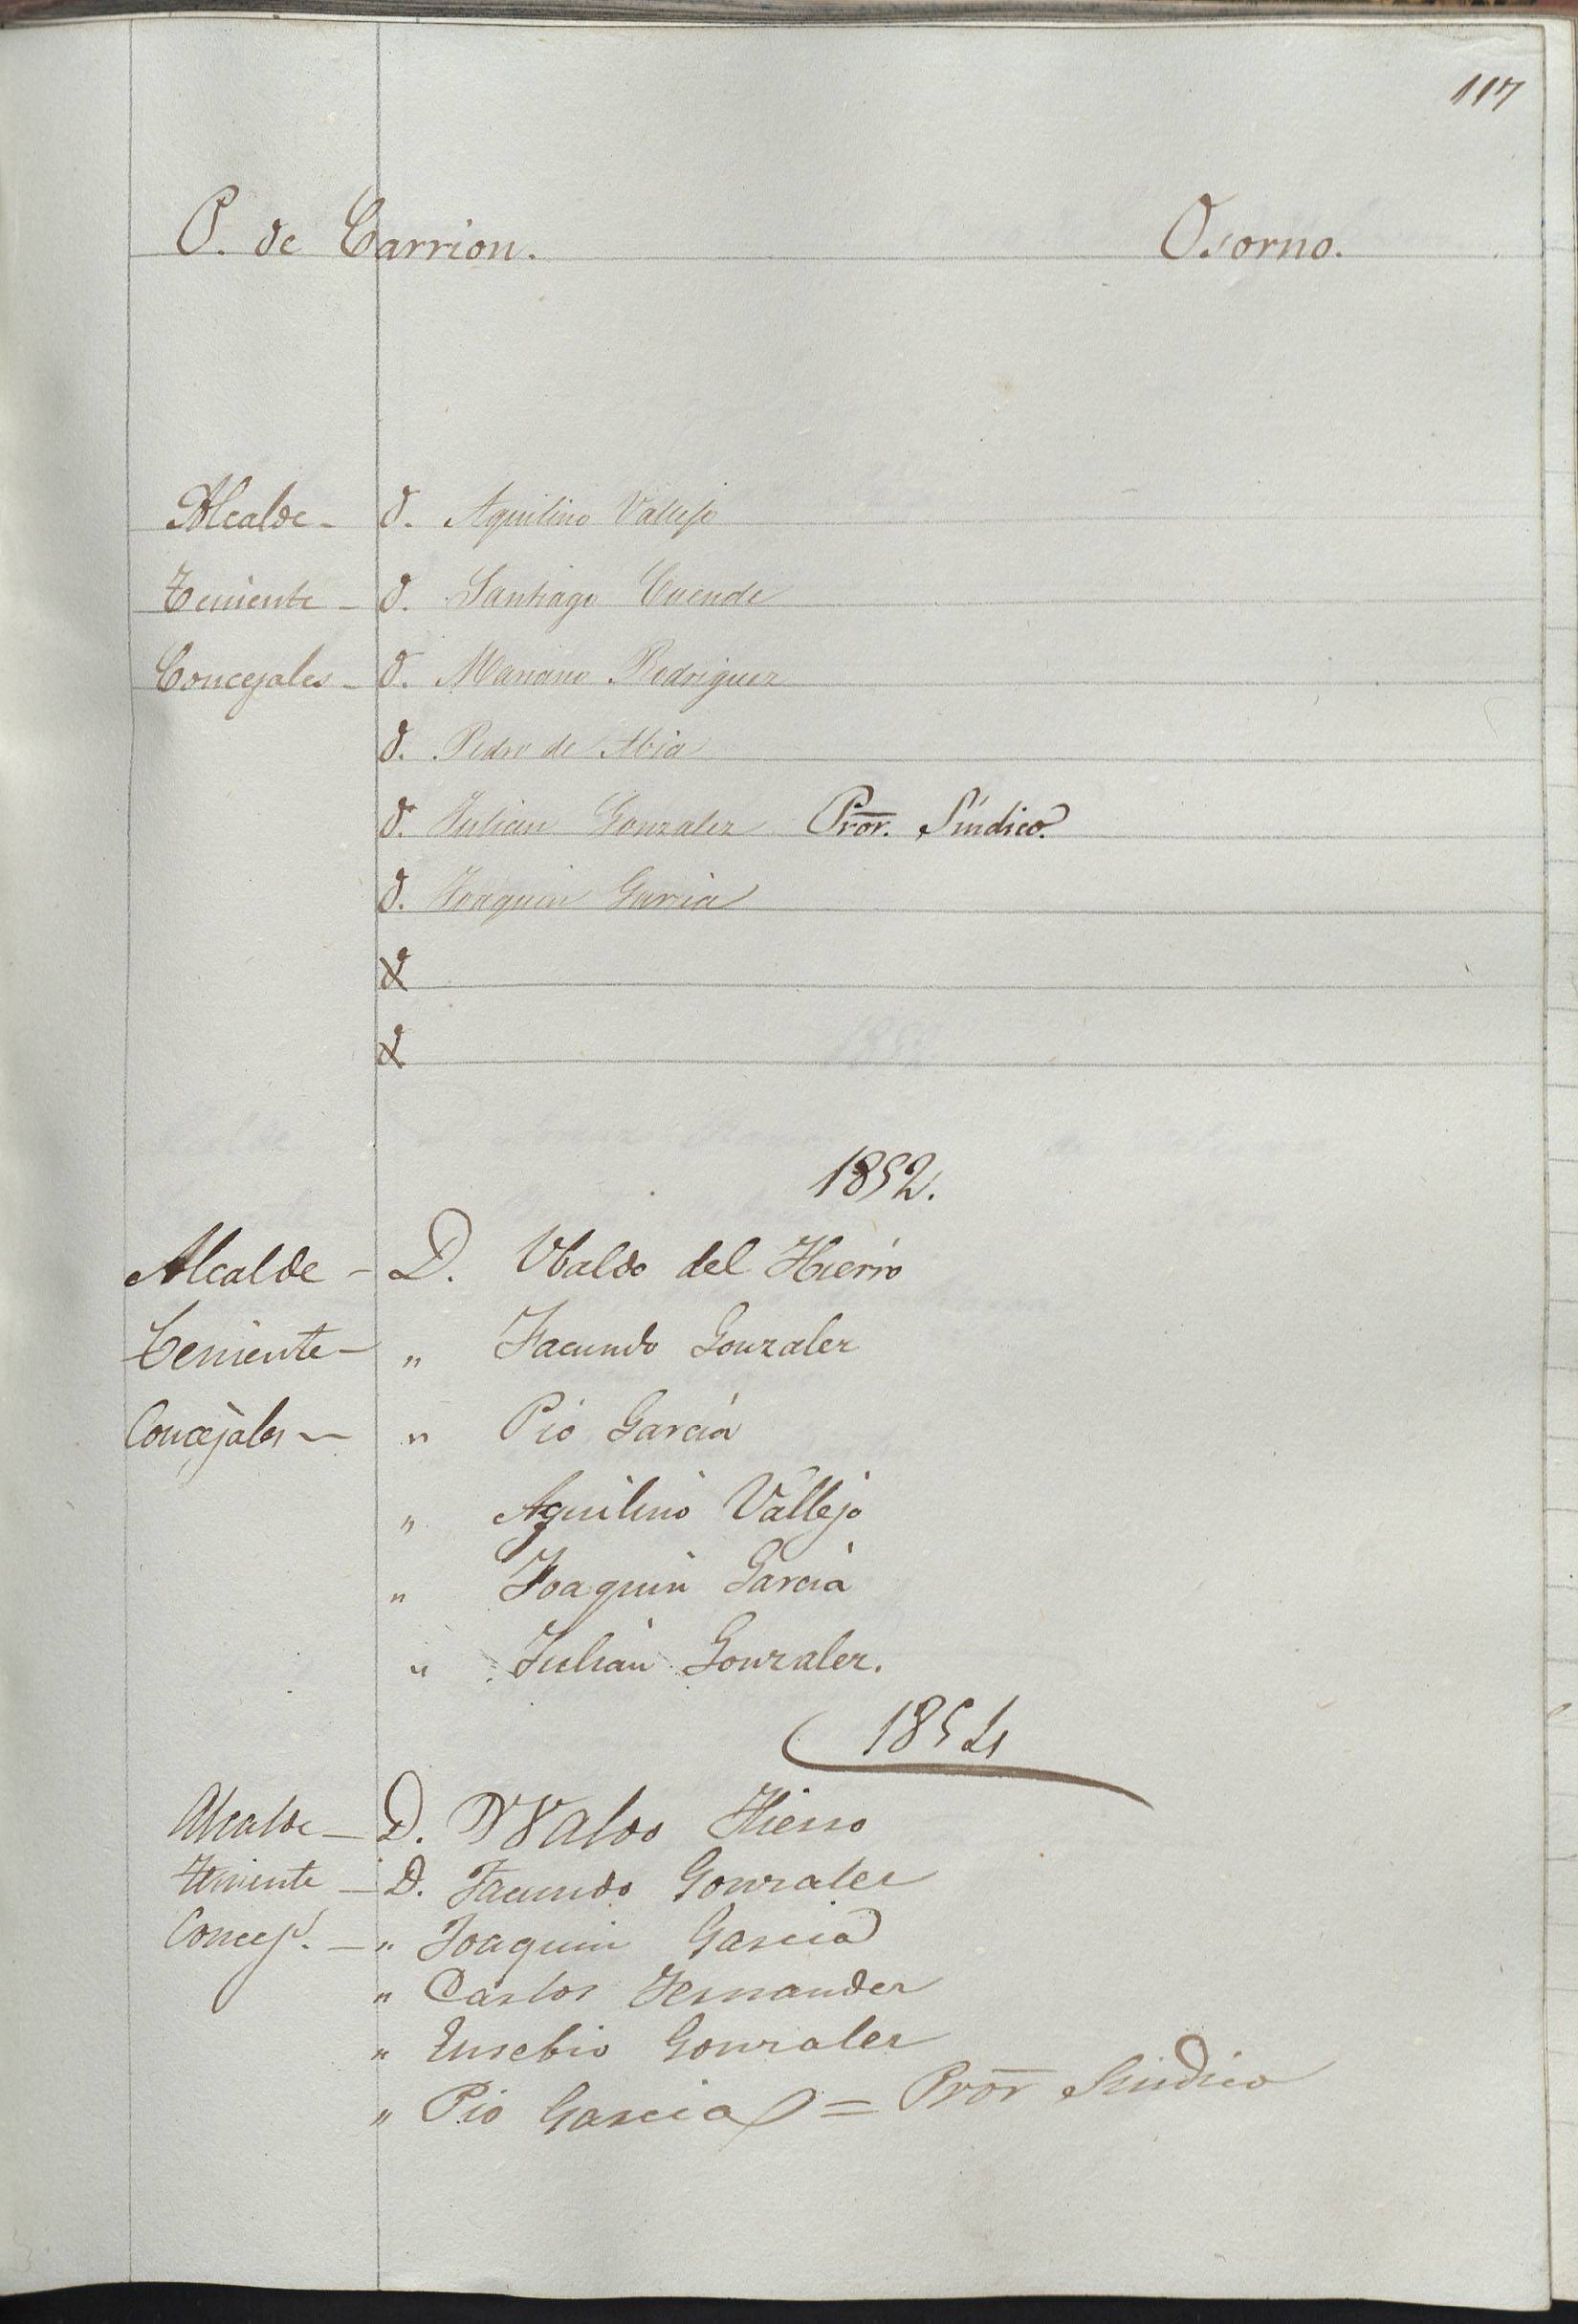 117
P. de Carrion. Osorno.
Alcalde - D. Aquilino Vallejo
Teniente - D. Santiago Cuende
Concejales - D. Mariano Rodriguez
D. Pedro de Abia
D. Julian Gonzalez Pror. Síndico.
D. Joaquin Garcia
D
D
1852.
Alcalde - D. Ubaldo del Hierro
Teniente - " Facundo Gonzalez
Concejales - " Pio García
" Aquilino Vallejo
" Joaquin Garcia
" Julian Gonzalez.
1854
Alcalde - D. Valdo Hierro
Teniente - D. Facundo Gonzalez
Concejs. - " Joaquin Garcia
" Carlos Fernandez
" Eusebio Gonzalez
" Pio Garcia = Pror Sindico